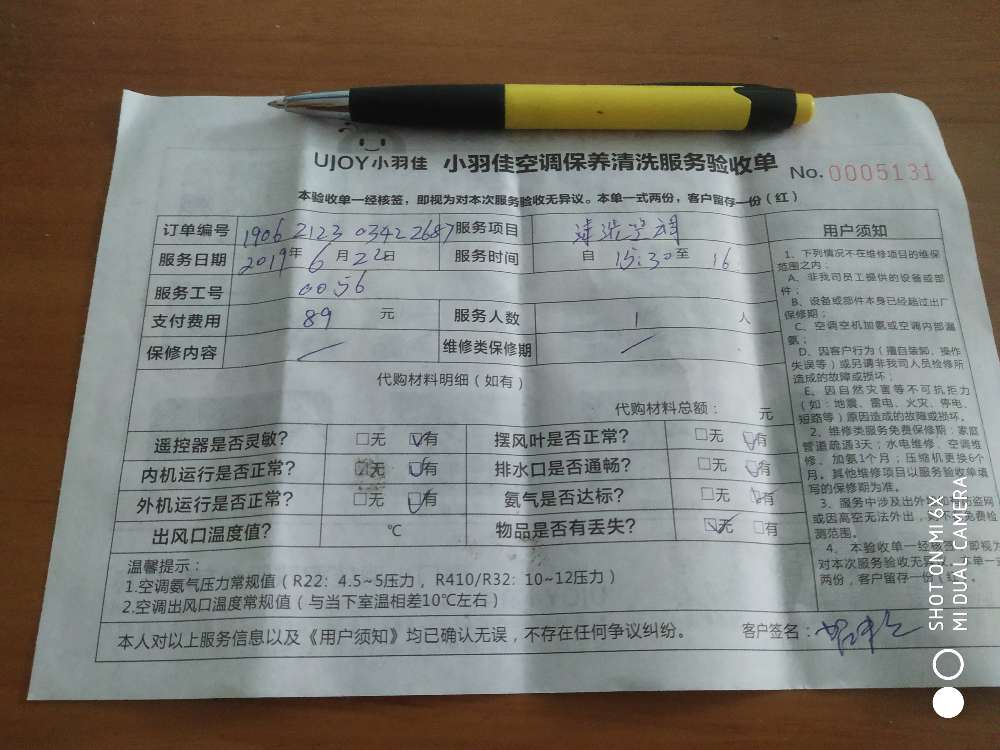 UJOY小羽佳 小羽佳空调保养清洗服务验收单 No.0005131
本验收单一经核签，即视为对本次服务验收无异议。本单一式两份，客户留存一份（红）
订单编号 1906 2123 0342 2687 服务项目 清洗空调
服务日期 2019年6月22日 服务时间 自 15:30至 16
服务工号 0056
支付费用 89 元 服务人数 1 人
保修内容 维修类保修期
代购材料明细（如有）
代购材料总额： 元
遥控器是否灵敏? □无 □有 摆风叶是否正常? □无 □有
内机运行是否正常? □无 □有 排水口是否通畅? □无 □有
外机运行是否正常? □无 □有 氨气是否达标? □无 □有
出风口温度值? ℃ 物品是否有丢失? □无 □有
温馨提示：
1.空调氨气压力常规值（R22：4.5~5压力，R410/R32：10~12压力）
2.空调出风口温度常规值（与当下室温相差10℃左右）
本人对以上服务信息以及《用户须知》均已确认无误，不存在任何争议纠纷。 客户签名：
用户须知
1、下列情况不在维修项目的维保
范围之内：
A、非我司员工提供的设备或部
件；
B、设备或部件本身已经超过出厂
保修期；
C、空调空机加氨或空调内部漏
氨；
D、因客户行为（擅自装卸、操作
失误等）或另请非我司人员检修所
造成的故障或损坏；
E、因自然灾害等不可抗拒力
（如：地震、雷电、火灾、停电、
短路等）原因造成的故障或损坏。
2、维修类服务免费保修期：家庭
管道疏通3天；水电维修、空调维
修、加氨1个月；压缩机更换6个
月。其他维修项目以服务验收单填
写的保修期为准。
3、服务中涉及出外 防盗网
或因高空无法外出， 免费检
测范围。
4、本验收单一经核签，即视为
对本次服务验收无异议。本单一式
两份，客户留存一份（红）
SHOT ON MI 6X
MI DUAL CAMERA